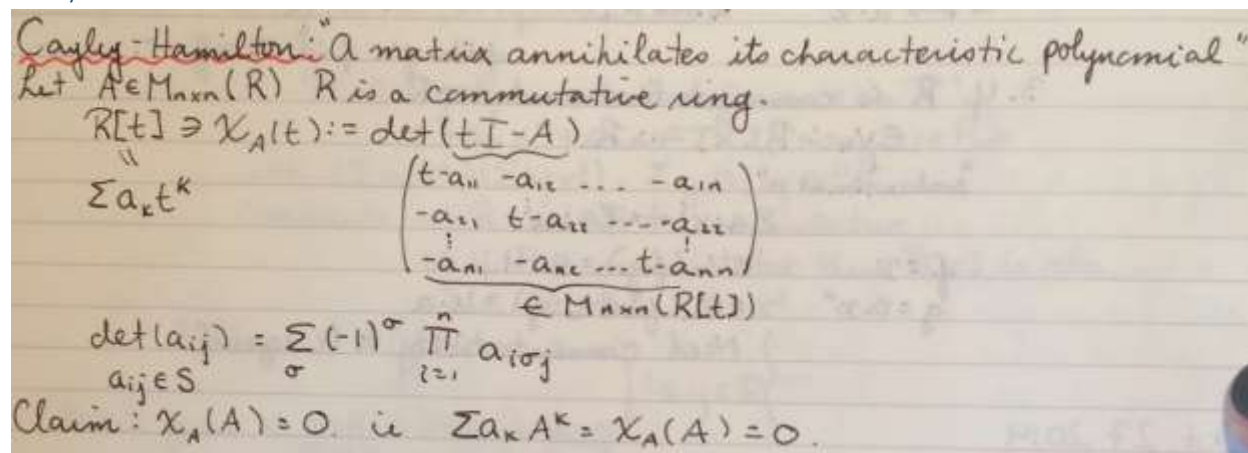 Cayley-Hamilton: "A matrix annihilates its characteristic polynomial"
Let A ∈ M_{n×n}(R) R is a commutative ring.
R[t] ∋ χ_A(t) := det(tI-A)
"
Σ a_k t^k
( t-a_{11} -a_{12} .... -a_{1n}
-a_{21} t-a_{22} ---- -a_{22}
⋮ ⋮
-a_{n1} -a_{n2} ... t-a_{nn} )
∈ M_{n×n}(R[t])
det(a_{ij}) = Σ_σ (-1)^σ ∏_{i=1}^{n} a_{iσj}
a_{ij} ∈ S
Claim: χ_A(A) = 0. ie Σ a_k A^k = χ_A(A) = 0.